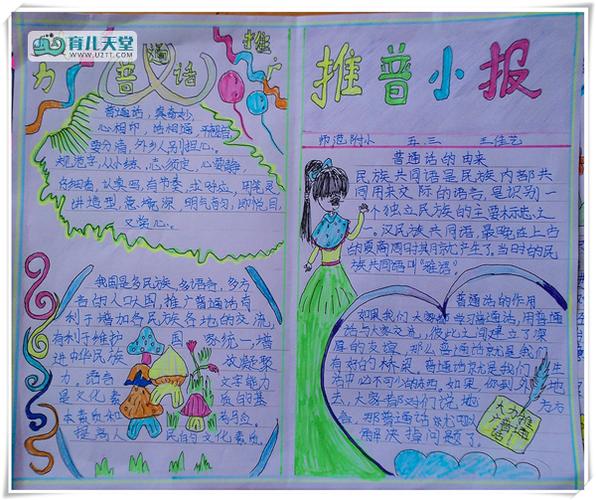 育儿天堂
WWW.U2TT.COM
大力推广
普通话
普通话,真奇妙,
心相印,话相通,
要分清,外乡人别担心。
规范字,从小练,心须定,心要静,
又赏心。
我国是多民族、多语言、多方
言的人口大国,推广普通话有
利于增加各民族各地的交流,
有利于维护国家统一,增
进中华民族的凝聚
力。语言文字能力
是文化素质的基
本素质和
提高人民的文化素质。
推普小报
师范附小 五、三 王佳艺
普通话的由来
民族共同语是民族内部共
同用来交际的语言,是识别一
个独立民族的主要标志之
一。汉民族共同语,最晚在上古
的夏商周时期就产生了,当时的民
族共同语叫“雅语”。
普通话的作用
如果我们大家都学习普通话,用普通
话与大家交流,彼此之间建立了深
厚的友谊,那么普通话就是我们
友好的桥梁。普通话就是我们生
活中必不可少的东西。如果你到外地
去,大家都对你们说地方方
言,那普通话
解决